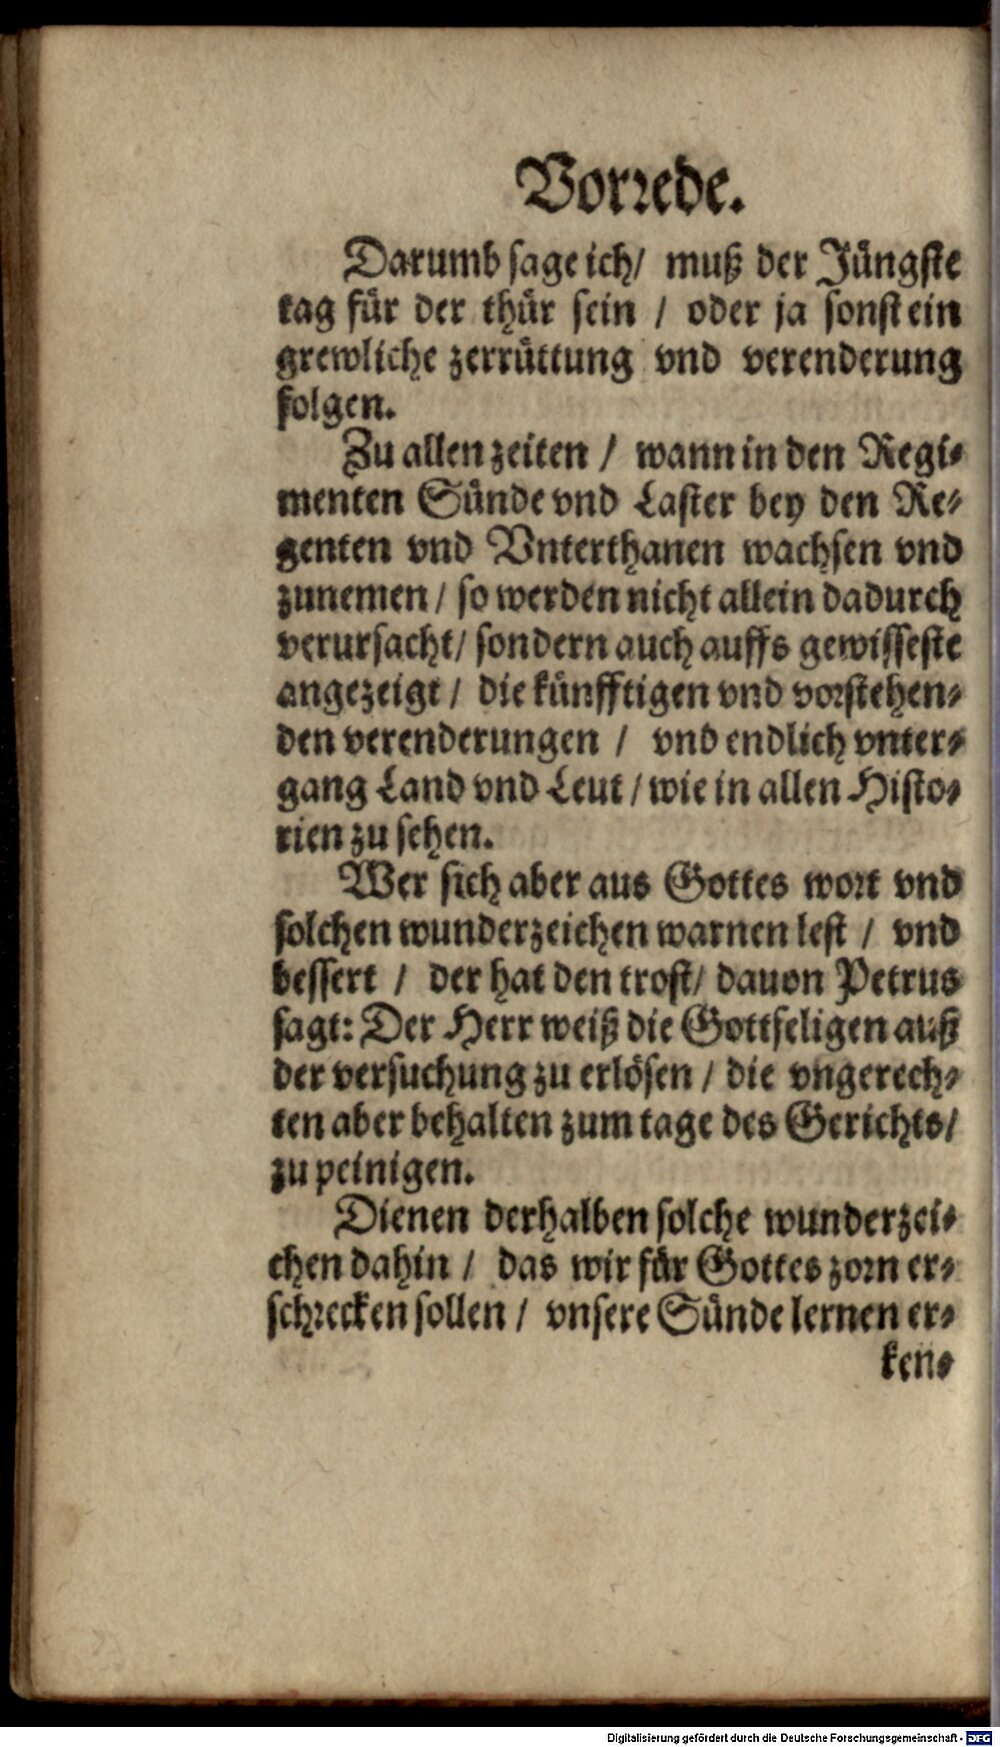 Vorrede.
Darumb sage ich/ muß der Jüngste
tag für der thür sein / oder ja sonst ein
grewliche zerrüttung vnd verenderung
folgen.
Zu allen zeiten / wann in den Regi-
menten Sünde vnd Laster bey den Re-
genten vnd Vnterthanen wachsen vnd
zunemen / so werden nicht allein dadurch
verursacht/ sondern auch auffs gewisseste
angezeigt / die künfftigen vnd vorstehen-
den verenderungen / vnd endlich vnter-
gang Land vnd Leut / wie in allen Histo-
rien zu sehen.
Wer sich aber aus Gottes wort vnd
solchen wunderzeichen warnen lest / vnd
bessert / der hat den trost/ dauon Petrus
sagt: Der Herr weiß die Gottseligen auß
der versuchung zu erlösen / die vngerech-
ten aber behalten zum tage des Gerichts/
zu peinigen.
Dienen derhalben solche wunderzei-
chen dahin / das wir für Gottes zorn er-
schrecken sollen / vnsere Sünde lernen er-
ken-
Digitalisierung gefördert durch die Deutsche Forschungsgemeinschaft - DFG